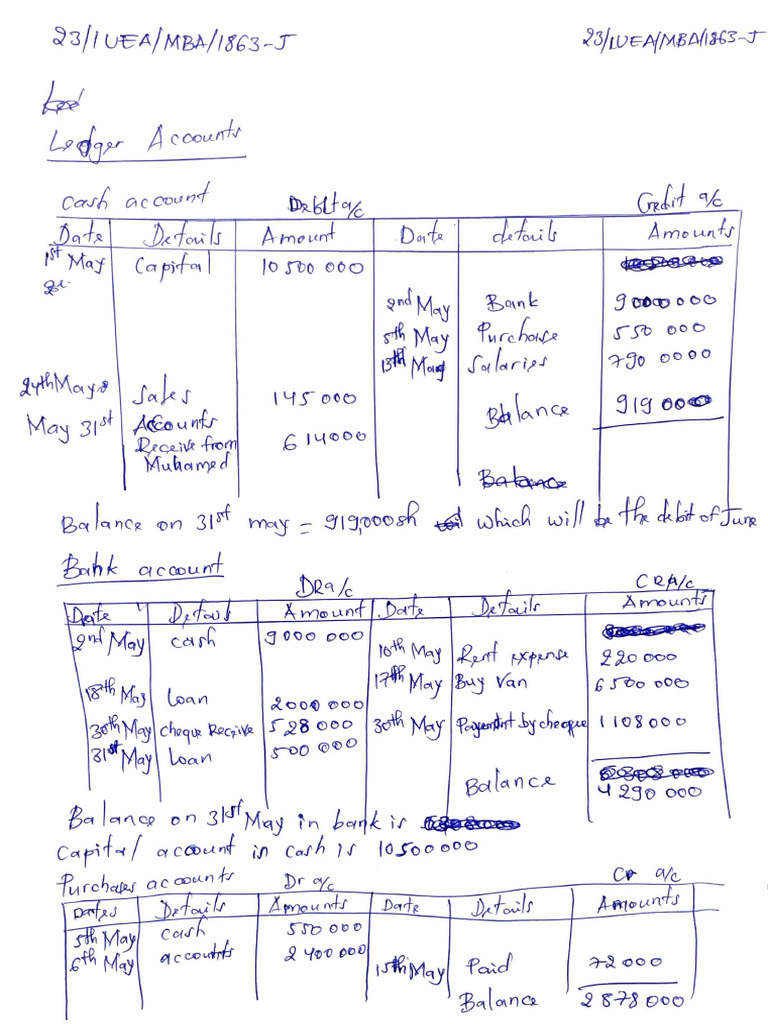 23/IUEA/MBA/1863-J 23/IUEA/MBA/1863-J
Ledger Accounts
Cash account Debit a/c Credit a/c
Date Details Amount Date details Amounts
1st May Capital 10500 000
2nd May Bank 9000000
5th May Purchase 550 000
13th May Salaries 790 0000
24th May Sales 145000
May 31st Accounts Receive from Muhamed 614000 Balance 919 000
Balance
Balance on 31st may = 919,000sh which will be the debit of June
Bank account
DR a/c CR A/c
Date Details Amount Date Details Amounts
2nd May cash 9000 000
10th May Rent expense 220 000
17th May Buy Van 6 500 000
18th May loan 2000 000
30th May cheque Receive 528 000 30th May Payment by cheque 1108 000
31st May loan 500 000
Balance 4 290 000
Balance on 31st May in bank is
Capital account in cash is 10500000
Purchases accounts Dr a/c Cr a/c
Dates Details Amounts Date Details Amounts
5th May cash 550 000
6th May accounts 2 400 000
15th May Paid 72 000
Balance 2 878 000